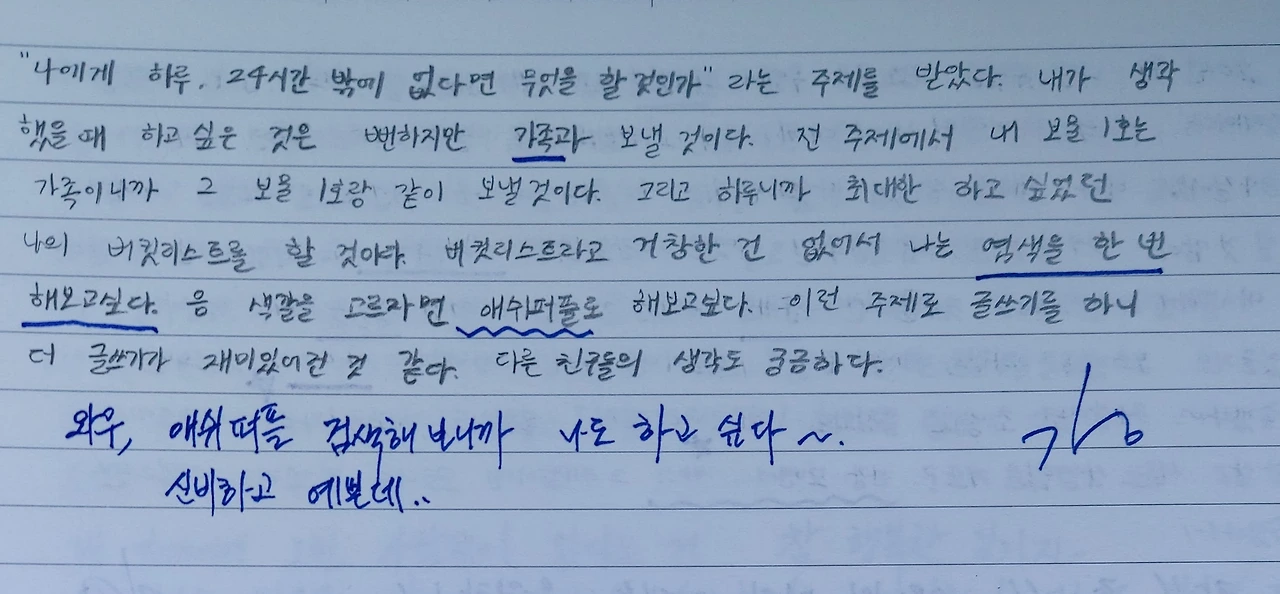 "나에게 하루, 24시간 밖에 없다면 무엇을 할 것인가" 라는 주제를 받았다. 내가 생각
했을 때 하고 싶은 것은 뻔하지만 가족과 보낼 것이다. 전 주제에서 내 보물 1호는
가족이니까 그 보물 1호랑 같이 보낼 것이다. 그리고 하루니까 최대한 하고 싶었던
나의 버킷리스트를 할 것이다. 버킷리스트라고 거창한 건 없어서 나는 염색을 한 번
해보고싶다. 음 색깔을 고르자면 애쉬퍼플로 해보고싶다. 이런 주제로 글쓰기를 하니
더 글쓰기가 재미있어진 것 같다. 다른 친구들의 생각도 궁금하다.
와우, 애쉬퍼플 검색해보니까 나도 하고 싶다~.
신비하고 예쁜데..